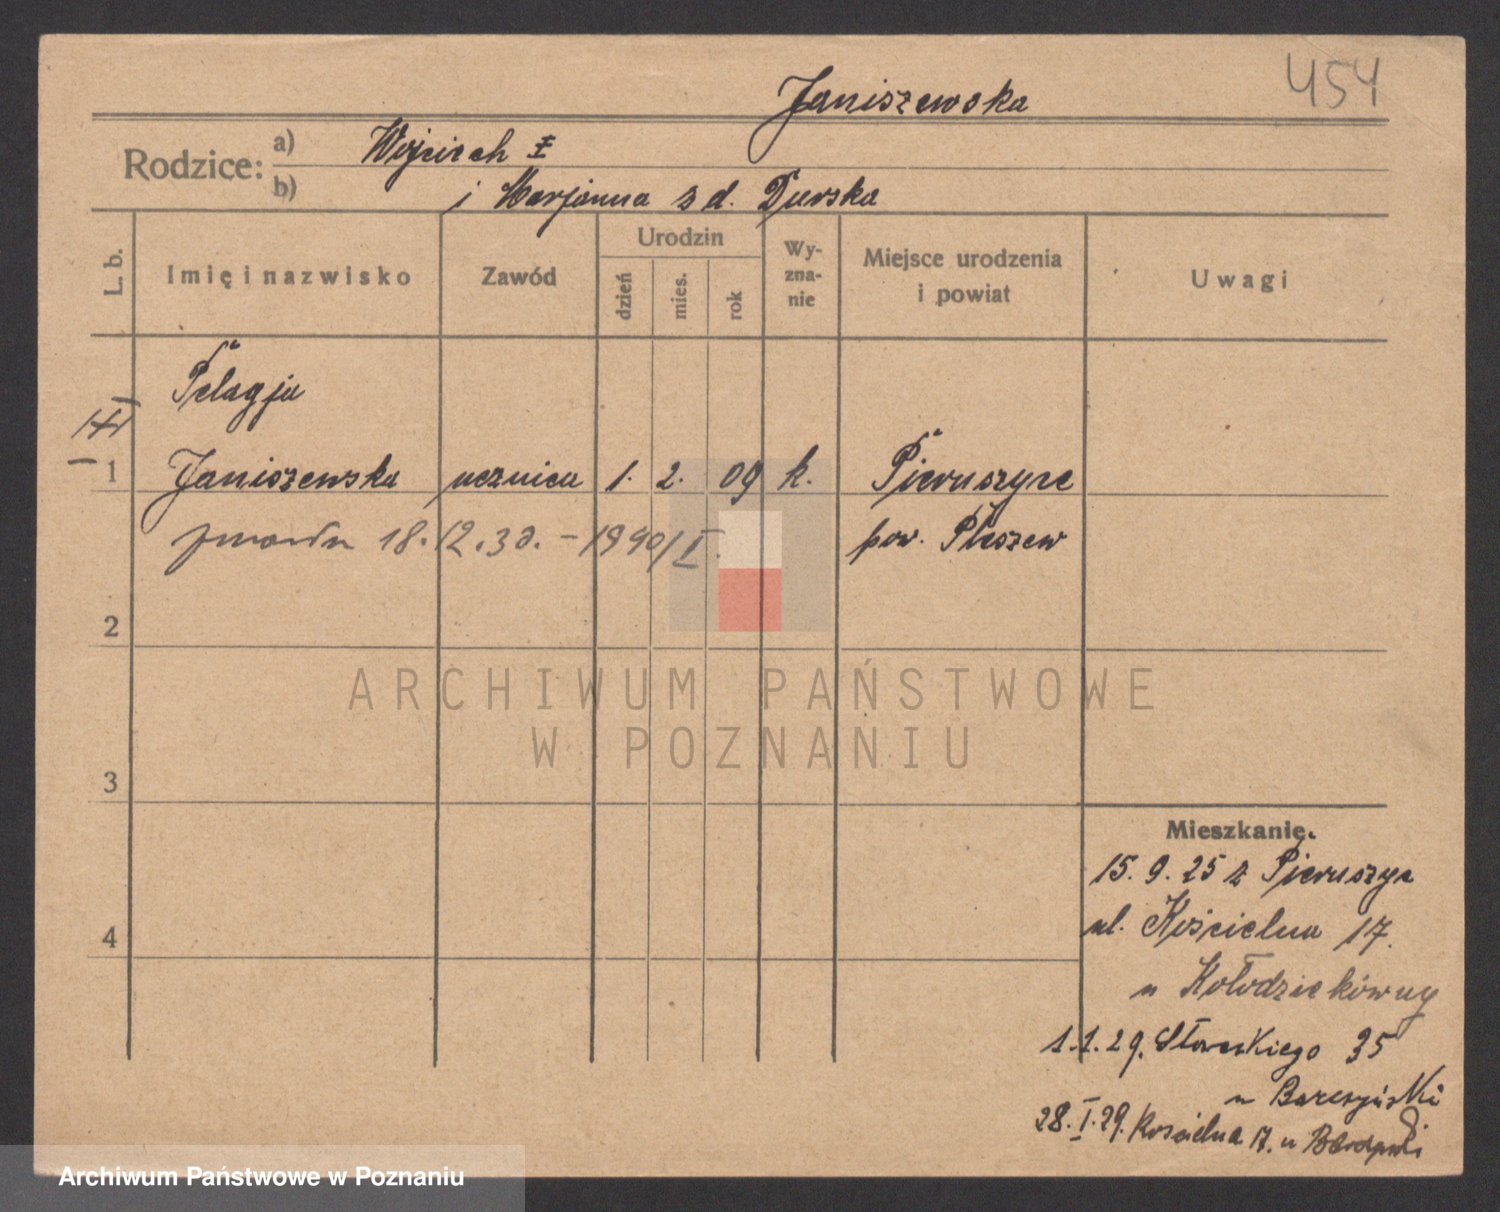 454
Janiszewska
Rodzice: a) Wojciech
b) i Marjanna z d. Durska
L. b.
Imię i nazwisko
Zawód
Urodzin
dzień
mies.
rok
Wy-
zna-
nie
Miejsce urodzenia
i powiat
Uwagi
Pelagja
1 Janiszewska ucznica 1. 2. 09 k. Pieruszyce
18.12.30. - 1940/I. pow. Pleszew
2
3
4
ARCHIWUM PAŃSTWOWE
W POZNANIU
Mieszkanie.
15. 9. 25 z Pieruszyc
ul. Kościelna 17.
u Kołodziekówny
1.1.29. Słowackiego 35
u
28.I.29. Kościelna 17. u
Archiwum Państwowe w Poznaniu